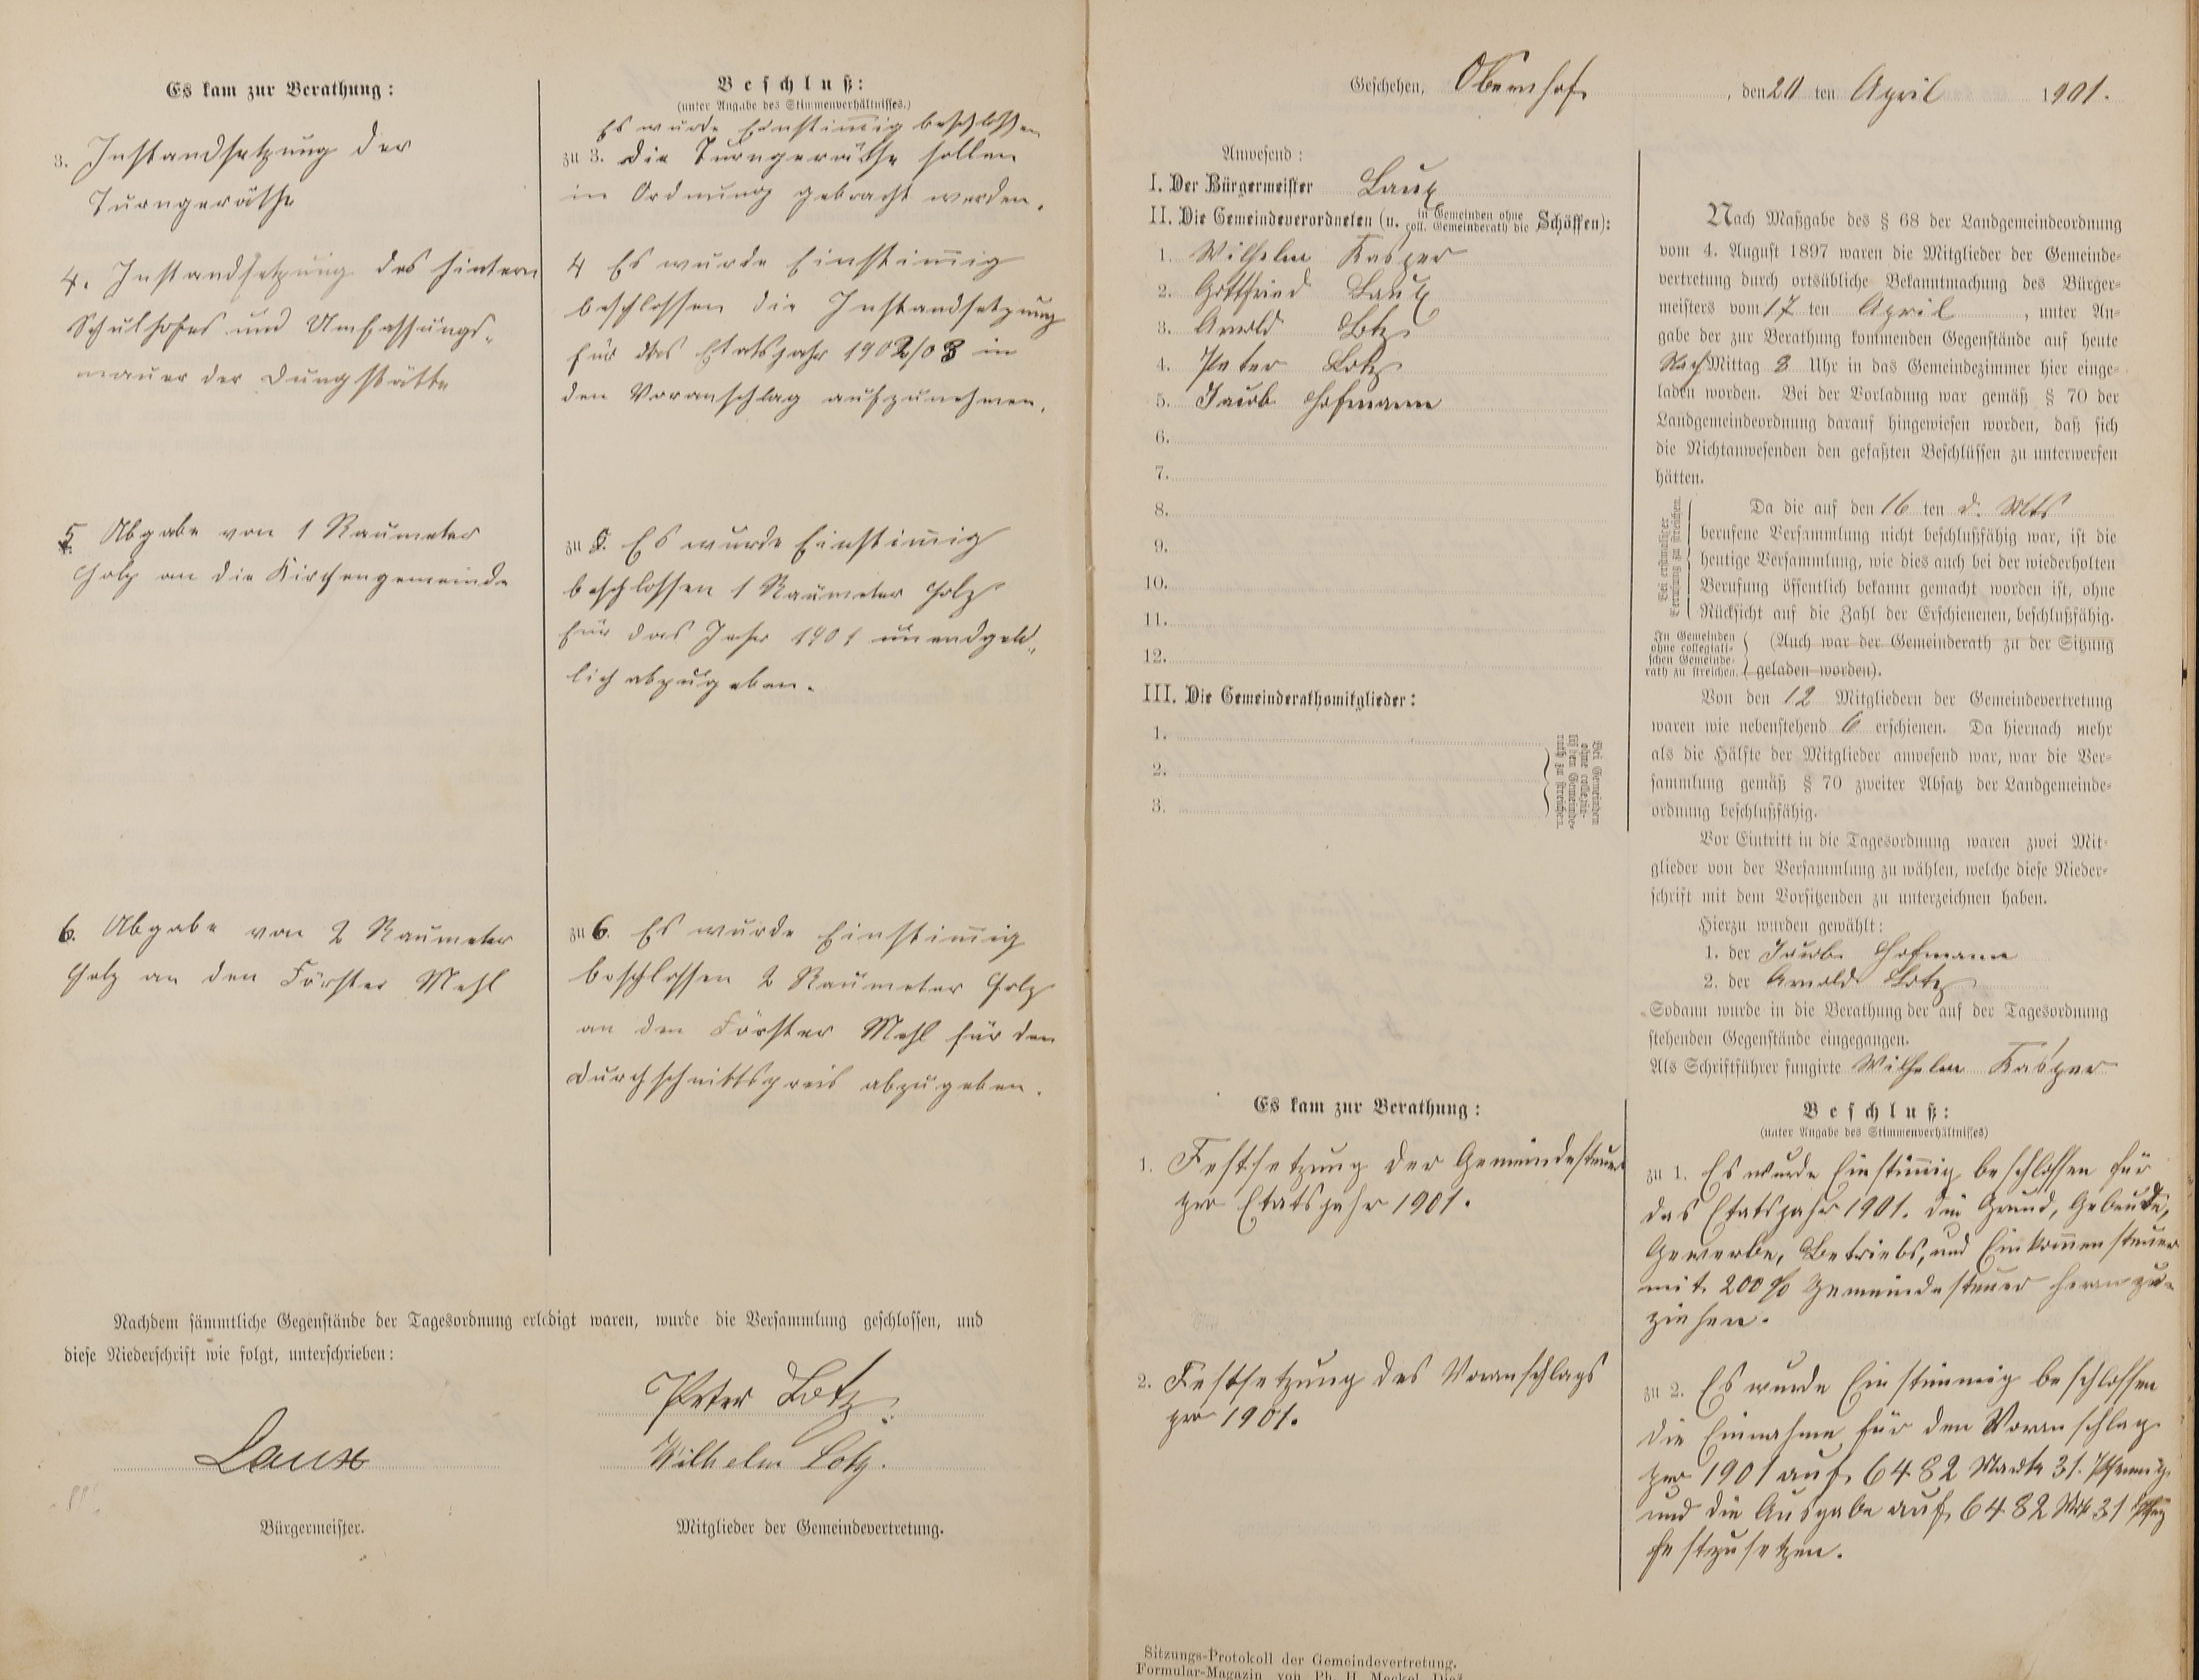 Es kam zur Berathung:
3. Instandsetzung der
Turngeräthe
4. Instandsetzung des hintern
Schulhofes und Umfassungs-
mauer der Dungstätte
5 Abgabe von 1 Raumeter
Holz an die Kirchengemeinde
6. Abgabe von 2 Raumeter
Holz an den Förster Mehl
Beschluß:
(unter Angabe des Stimmenverhältnisses.)
Es wurde Einstimig beschlossen
zu 3. die Turngeräthe sollen
in Ordnung gebracht werden.
4 Es wurde Einstimig
beschlossen die Instandsetzung
für das Etatsjahr 1902/03 in
den Voranschlag aufzunehmen.
zu 5. Es wurde Einstimig
beschlossen 1 Raumeter Holz
für das Jahr 1901 unendgeld-
lich abzugeben.
zu 6. Es wurde Einstimig
beschlossen 2 Raumeter Holz
an den Förster Mehl für den
Durchschnittspreis abzugeben.
Nachdem sämmtliche Gegenstände der Tagesordnung erledigt waren, wurde die Versammlung geschlossen, und
diese Niederschrift wie folgt, unterschrieben:
Peter Lotz.
Laux
Wilhelm Lotz.
Bürgermeister.
Mitglieder der Gemeindevertretung.
Geschehen, Obernhof, den 20 ten April 1901.
Anwesend:
I. Der Bürgermeister Laux
II. Die Gemeindeverordneten (u. in Gemeinden ohne coll. Gemeinderath die Schöffen):
1. Wilhelm Kasper
2. Gottfried Laux
3. Arnold Lotz
4. Peter Lotz
5. Jacob Hofmann
6.
7.
8.
9.
10.
11.
12.
III. Die Gemeinderathsmitglieder:
1.
2.
3.
Bei Gemeinden
ohne collegia-
lischen Gemeinde-
rath zu streichen.
Nach Maßgabe des § 68 der Landgemeindeordnung
vom 4. August 1897 waren die Mitglieder der Gemeinde-
vertretung durch ortsübliche Bekanntmachung des Bürger-
meisters vom 17 ten April, unter An-
gabe der zur Berathung kommenden Gegenstände auf heute
Nach Mittag 8 Uhr in das Gemeindezimmer hier einge-
laden worden. Bei der Vorladung war gemäß § 70 der
Landgemeindeordnung darauf hingewiesen worden, daß sich
die Nichtanwesenden den gefaßten Beschlüssen zu unterwerfen
hätten.
Bei erstmaliger
Berufung zu streichen.
Da die auf den 16 ten d. Mts
berufene Versammlung nicht beschlußfähig war, ist die
heutige Versammlung, wie dies auch bei der wiederholten
Berufung öffentlich bekannt gemacht worden ist, ohne
Rücksicht auf die Zahl der Erschienenen, beschlußfähig.
In Gemeinden
ohne collegiali-
schen Gemeinde-
rath zu streichen.
(Auch war der Gemeinderath zu der Sitzung
geladen worden).
Von den 12 Mitgliedern der Gemeindevertretung
waren wie nebenstehend 6 erschienen. Da hiernach mehr
als die Hälfte der Mitglieder anwesend war, war die Ver-
sammlung gemäß § 70 zweiter Absatz der Landgemeinde-
ordnung beschlußfähig.
Vor Eintritt in die Tagesordnung waren zwei Mit-
glieder von der Versammlung zu wählen, welche diese Nieder-
schrift mit dem Vorsitzenden zu unterzeichnen haben.
Hierzu wurden gewählt:
1. der Jacob Hofmann
2. der Arnold Lotz
Sodann wurde in die Berathung der auf der Tagesordnung
stehenden Gegenstände eingegangen.
Als Schriftführer fungirte Wilhelm Kasper
Es kam zur Berathung:
1. Festsetzung der Gemeindesteuer
pro Etatsjahr 1901.
2. Festsetzung des Voranschlags
pro 1901.
Beschluß:
(unter Angabe des Stimmenverhältnisses)
zu 1. Es wurde Einstimig beschlossen für
das Etatsjahr 1901. die Grund, Gebäude,
Gewerbe, Betriebs, und Einkommensteuer
mit 200 % Gemeindesteuer heranzu-
ziehen.
zu 2. Es wurde Einstimmig beschlossen
die Einnahme für den Voranschlag
pro 1901 auf 6482 Mark 31. Pfennig
und die Ausgabe auf 6482 Mk 31 Pfg
festzusetzen.
Sitzungs-Protokoll der Gemeindevertretung.
Formular-Magazin von Ph. H. Meckel Diez